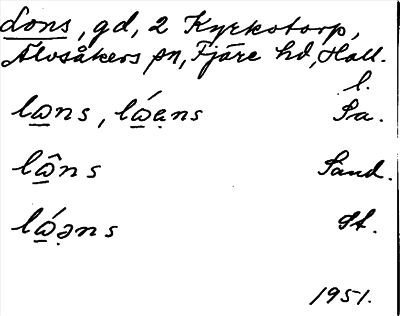 Lons, gd, 2 Kyrkotorp,
Älvsåkers sn, Fjäre hd, Hall.
l.
lɷns, lɷ́ə̣ns Pa.
lɷ̂ns Sand.
lɷ́ə̣ns St.
1951.